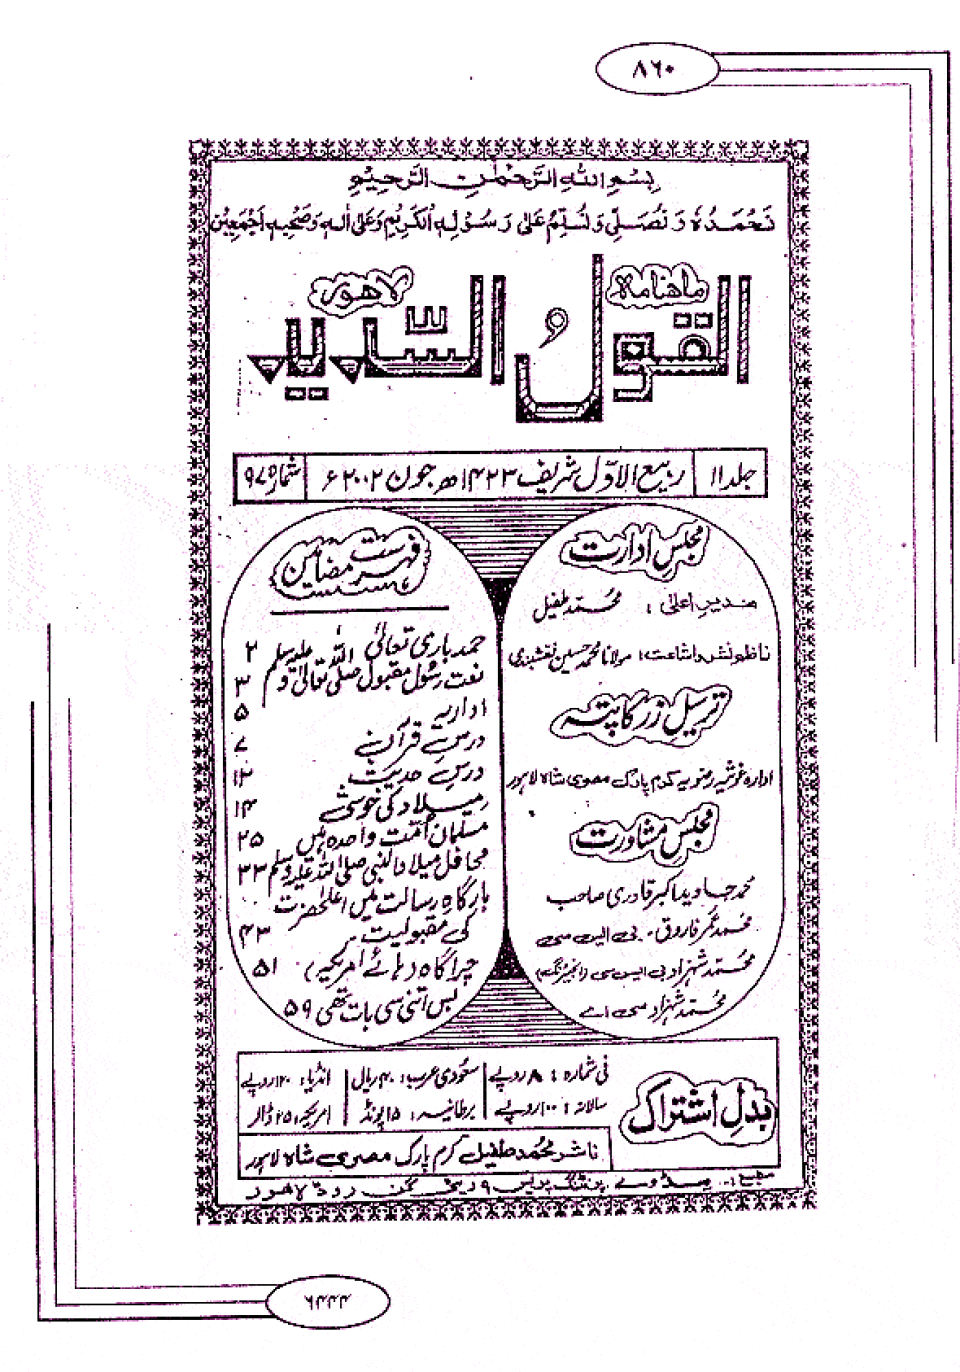 ۸۶۰
بسم اللہ الرحمٰن الرحیم
نحمدہ و نصلی و نسلم علی رسولہ الکریم وعلی الہ وصحبہ اجمعین
ماہنامہ
القول السدید
لاہور
جلد ۱۱
ربیع الاوّل شریف ۱۴۲۳ھ جون ۲۰۰۲ء
شمارہ ۹۷
مجلسِ ادارت
مدیرِ اعلیٰ : محمد طفیل
ناظم نشر واشاعت : مولانا محمد حسین نقشبندی
ترسیلِ زر کا پتہ
ادارہ غوثیہ رضویہ کرم پارک مصری شاہ لاہور
مجلسِ مشاورت
محمد جاوید اکبر قادری صاحب
محمد عمر فاروق . بی ایس سی
محمد شہزاد بی ایس سی (انجینئرنگ)
محمد شہزاد سی اے
فہرست مضامین
حمد باری تعالیٰ ۲
نعت رسُول مقبول صلی اللہ تعالیٰ علیہ وسلم ۳
اداریہ ۵
درسِ قرآن ۷
درسِ حدیث ۱۲
میلاد کی خوشی ۱۴
مسلمان اُمّت واحدہ ہیں ۲۵
محافل میلاد النبی صلی اللہ علیہ وسلم ۳۳
بارگاہ رسالت میں اعلیٰحضرت
کی مقبولیت ۴۳
چراگاہ (ہائے امریکہ) ۵۱
بس اتنی سی بات تھی ۵۹
بدلِ اشتراک
فی شمارہ : ۸ روپے
سعودی عرب: ۴۰ ریال
انڈیا: ۱۲۰ روپے
سالانہ : ۱۰۰ روپے
برطانیہ: ۱۵ پونڈ
امریکہ: ۲۵ ڈالر
ناشر محمد طفیل کرم پارک مصری شاہ لاہور
مطبع :- پرنٹنگ پریس ۹ ریٹی گن روڈ لاہور
۶۴۴۴